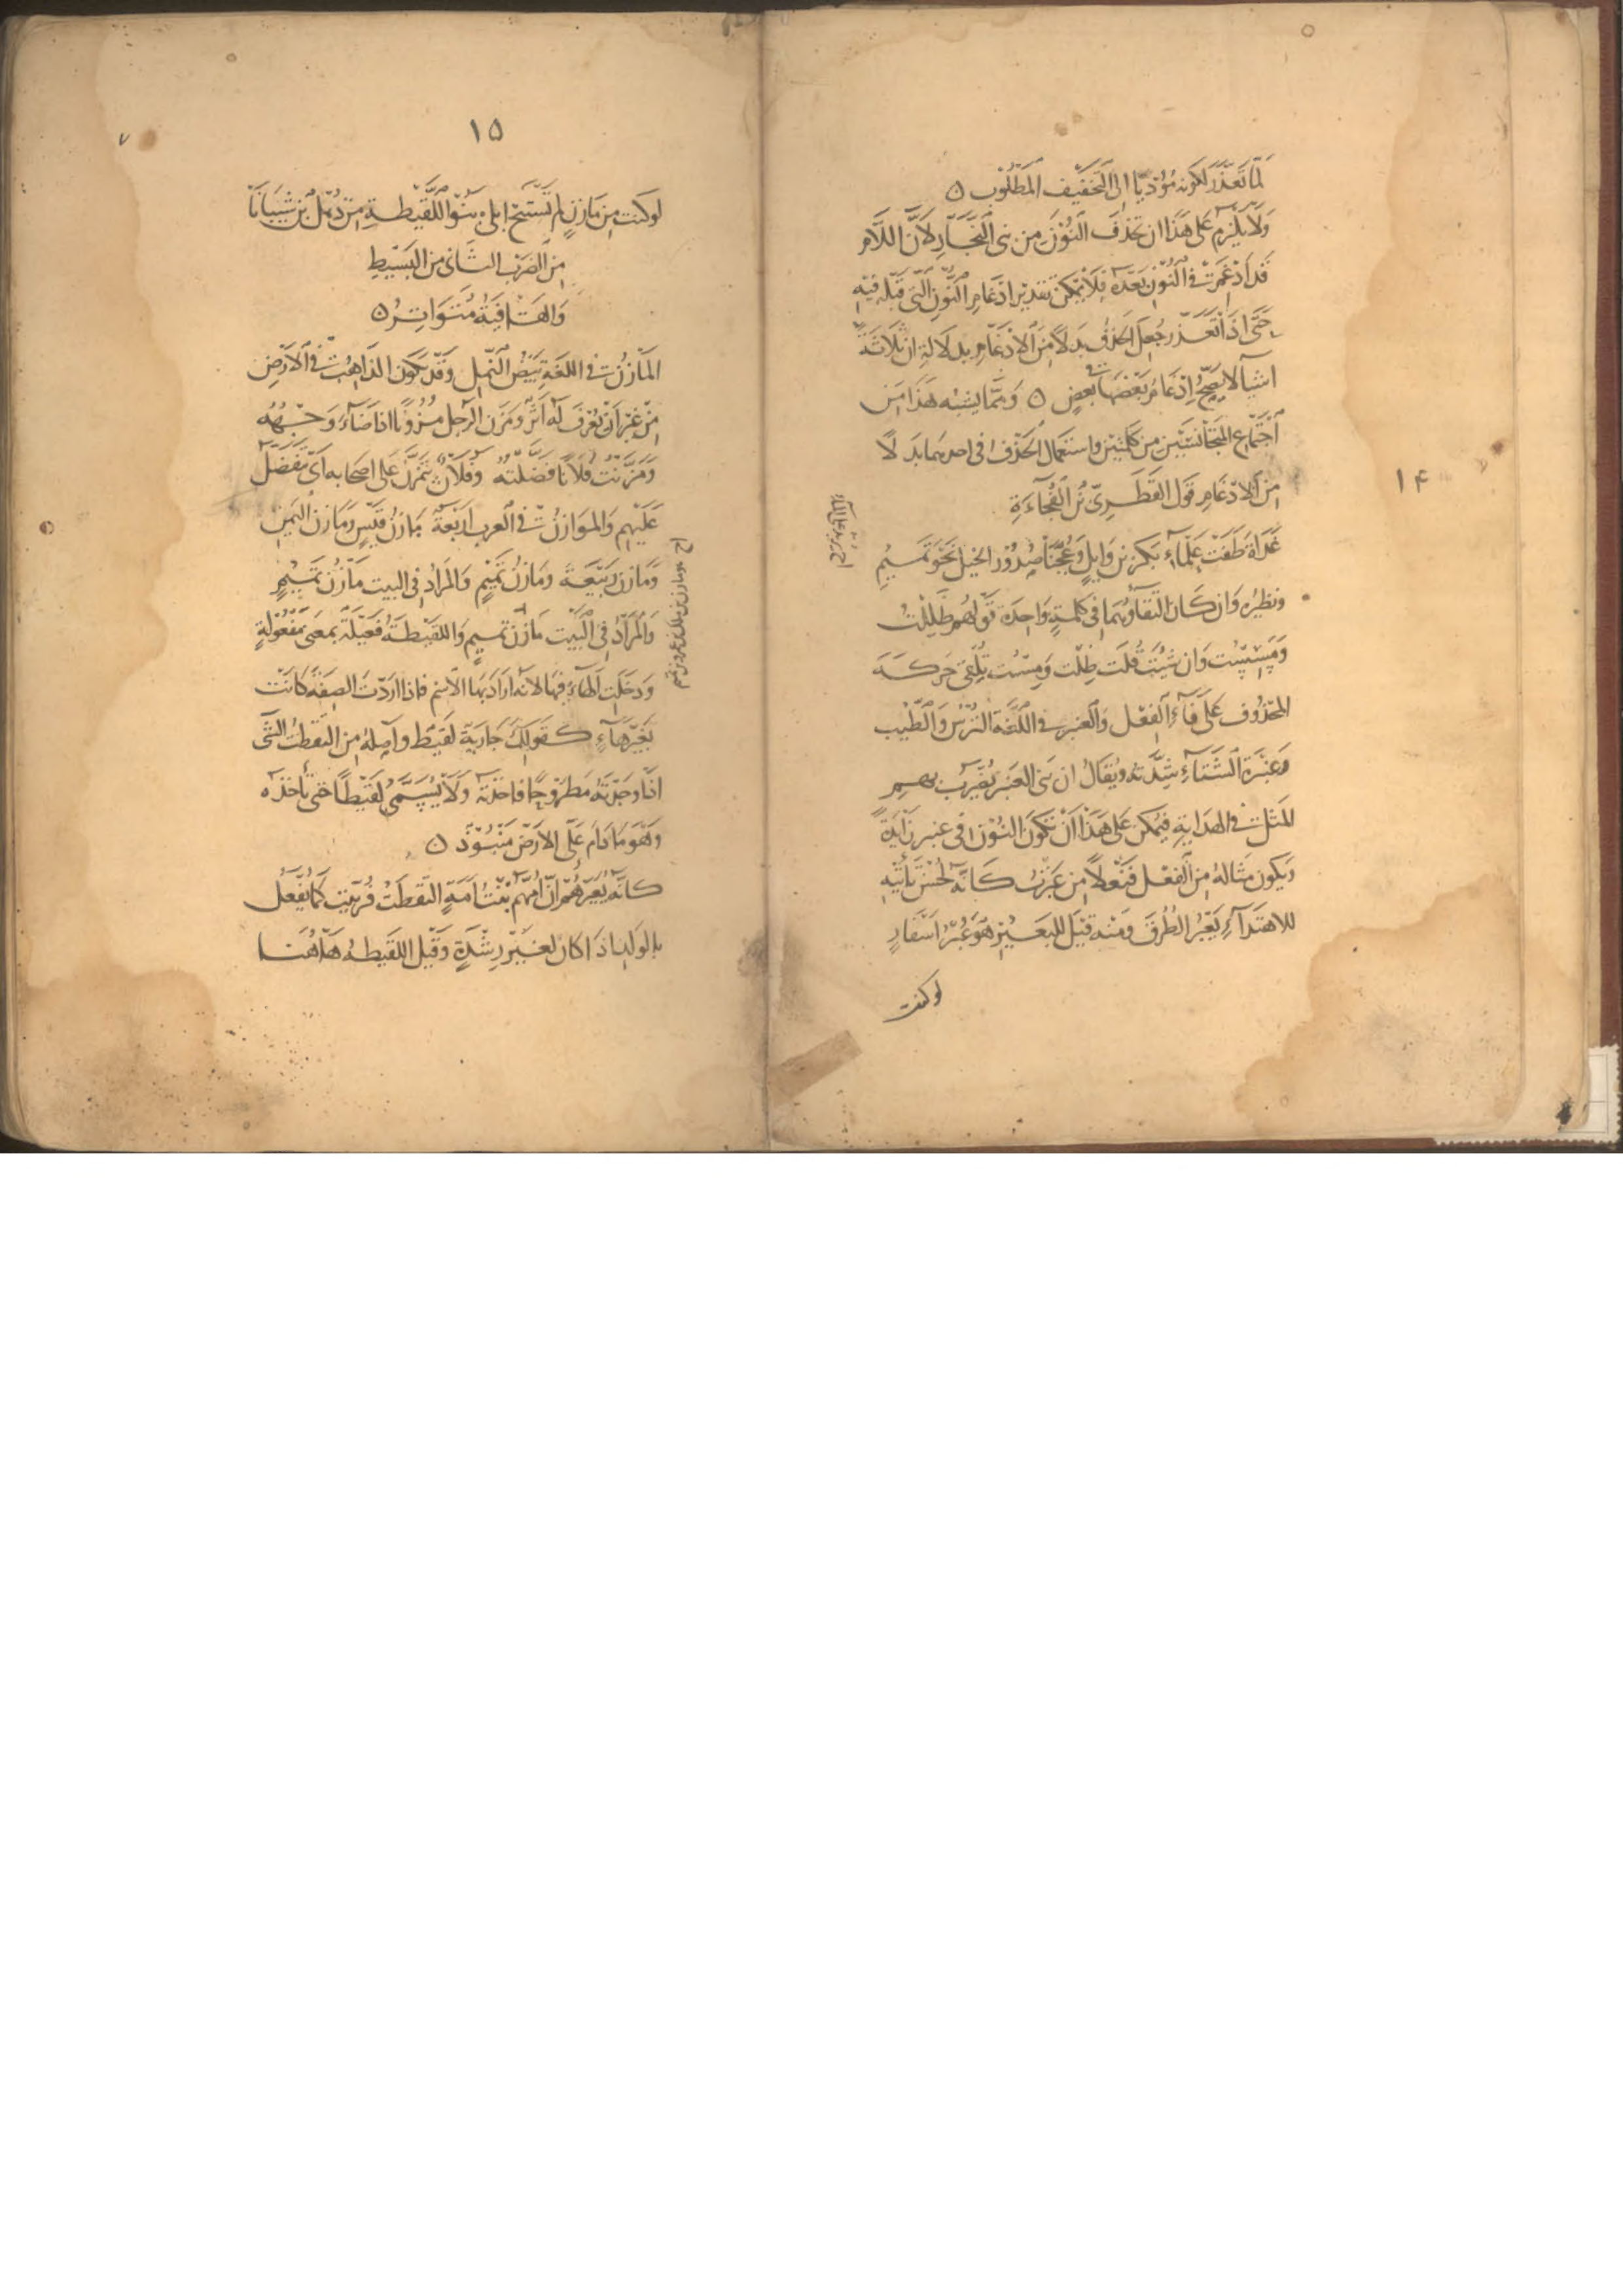 لما تعذر لكونه مؤديا الى التخفيف المطلوب ه
ولا يلزم على هذا ان تحذف النون من بنى النجار لان اللام
قد ادغمت فى النون بعده فلا يمكن تقدير ادغام النون التى قبله فيه
حتى اذا تعذر جعل الحذف بدلا من الادغام بدلالة ان ثلاثة
اشيآ لا يصح ادغام بعضها فى بعض ه ومما يشبه هذا من
اجتماع المتجانسين من كلمتين واستعمال الحذف فى احدهما بدلا
١۴
من الادغام قول القطرى بن الفجاءة
غداة طفت علمآء بكر بن وايل وعجنا صدور الخيل نحو تميم
اى يريد على المآء
ونظيره وان كان التقاؤهما فى كلمة واحدة قولهم ظللت
ومسست وان شئت قلت ظلت ومست تلقى حركة
المحذوف على فآء الفعل والعنبر فى اللغة الترس والطيب
وعنبرة الشتآء شدته ويقال ان بنى العنبر يضرب بهم
المثل فى الهداية فيمكن على هذا ان تكون النون فى عنبر زايدة
ويكون مثاله من الفعل فنعلا من عبرت كانه لحسن تأتيه
للاهتدآء يعبر الطرق ومنه قيل للبعير هو عبر اسفار
لو كنت
١۵
٧
لو كنت من مازن لم تستبح ابلى بنو اللقيطة من ذهل بن شيبانا
من الضرب الثانى من البسيط
والقافية متواتر ه
المازن فى اللغة بيض النمل وقد يكون الذاهب فى الارض
من غير ان يعرف له اثر ومزن الرجل مزونا اذا ضآء وجهه
ومزنت فلانا فضلته وفلان يتمزن على اصحابه اى يتفضل
عليهم والموازن فى العرب اربعة مازن قيس ومازن اليمن
ومازن ربيعة ومازن تميم والمراد فى البيت مازن تميم
وهو مازن بن ملك بن عمرو بن تميم
والمراد فى البيت مازن تميم واللقيطة فعيلة بمعنى مفعولة
ودخلت الهآء فيها لانه اراد بها الاسم فاذا اردت الصفة كانت
بغير هآء كقولك جارية لقيط واصله من التقطت الشى
اذا وجدته مطروحا فاخذته ولا يسمى لقيطا حتى تاخذه
وهو ما دام على الارض منبوذ ه
كانه يعيرهم ان امهم بنت امة التقطت فربيت كما يفعل
بالولد اذا كان لغير رشدة وقيل اللقيطة هاهنا